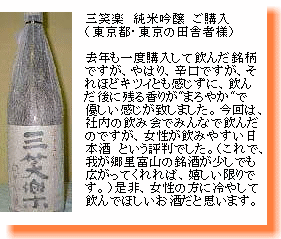 三笑楽　純米吟醸　ご購入
（東京都・東京の田舎者様）
去年も一度購入して飲んだ銘柄
ですが、やはり、辛口ですが、そ
れほどキツイとも感じずに、飲ん
だ後に残る香りが”まろやか”で
優しい感じが致しました。今回は、
社内の飲み会でみんなで飲んだ
のですが、女性が飲みやすい日
本酒 という評判でした。（これで、
我が郷里富山の銘酒が少しでも
広がってくれれば、嬉しい限りで
す。）是非、女性の方に冷やして
飲んでほしいお酒だと思います。
三笑楽